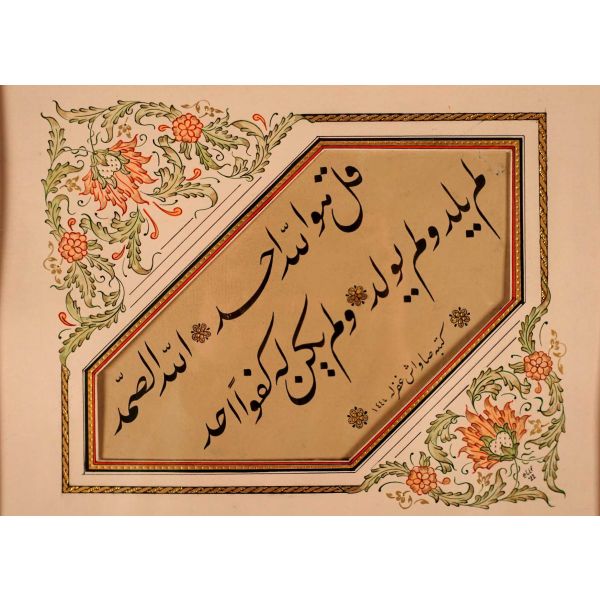 قل هو الله احد الله الصمد
لم يلد ولم يولد ولم يكن له كفوا احد
كتبه صاواش غفرله ١٤٤٠